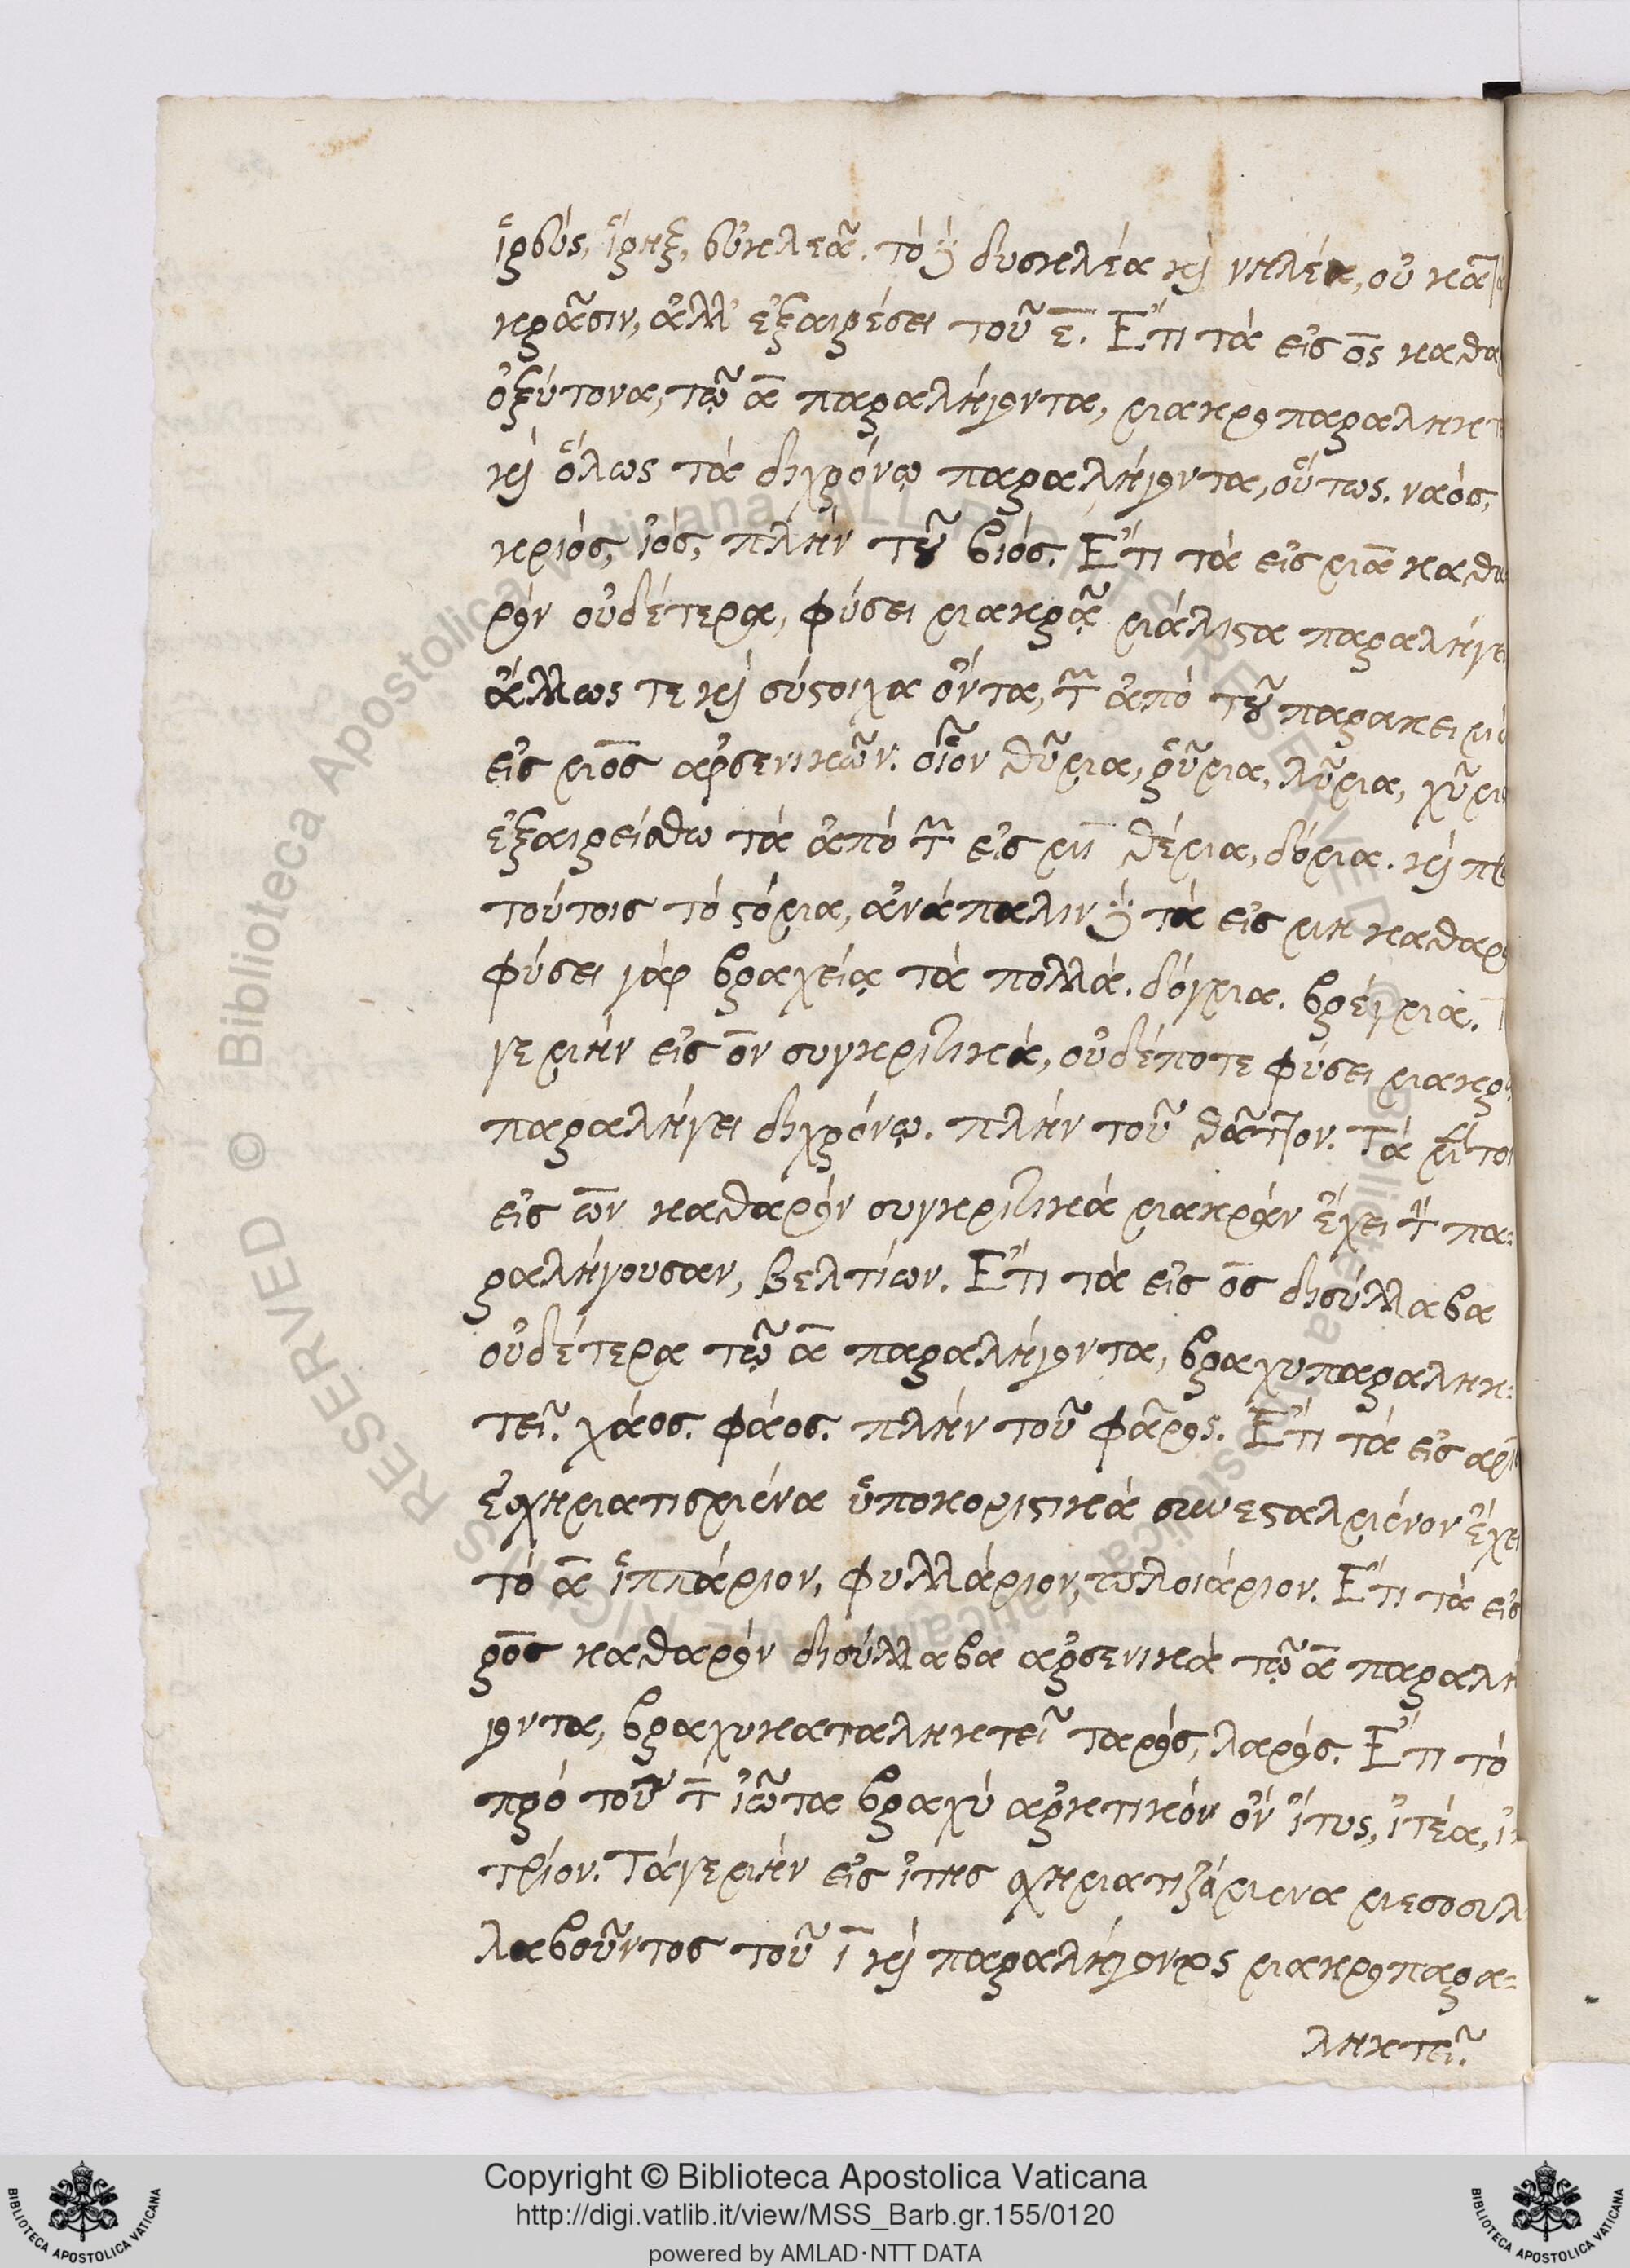 ἱρεύς, ἵρηξ, εὐκλεᾶ. τὸ δὲ δυσκλέα καὶ νηλέα, οὐ κατὰ
κρᾶσιν, ἀλλ' ἐξαιρέσει τοῦ ε̄. Ἔτι τὰ εἰς ος καθα
ὀξύτονα, τῷ ᾱ παραλήγοντα, μακροπαραληκτ
καὶ ὅλως τὰ διχρόνῳ παραλήγοντα, οὕτως. ναός,
κριός, ἰός, πλὴν τοῦ βιός. Ἔτι τὰ εἰς μα καθα
ρὸν οὐδέτερα, φύσει μακρᾷ μάλιστα παραλήγε
ἄλλως τε καὶ σύστοιχα ὄντα, τῶν ἀπὸ τοῦ παρακειμέ
εἰς μος ἀρσενικῶν. οἷον θῦμα, ῥῦμα, λῦμα, χῦμα
ἐξαιρείσθω τὰ ἀπὸ τῶν εἰς μι θέμα, δόμα. καὶ π
τούτοις τὸ στόμα, ἀνάπαλιν δὲ τὰ εἰς μη καθαρ
φύσει γὰρ βραχείᾳ τὰ πολλά. δόγμα. βρέγμα. Τ
γε μὴν εἰς ον συγκριτικά, οὐδέποτε φύσει μακρ
παραλήγει διχρόνῳ. πλὴν τοῦ θᾶττον. Τὰ μέντοι
εἰς ων καθαρὸν συγκριτικὰ μακρὰν ἔχει τὴν πα-
ραλήγουσαν, βελτίων. Ἔτι τὰ εἰς ος δισύλλαβα
οὐδέτερα τῷ ᾱ παραλήγοντα, βραχυπαραληκ-
τεῖ. χάος. φάος. πλὴν τοῦ φᾶρος. Ἔτι τὰ εἰς αρι
ἐσχηματισμένα ὑποκοριστικὰ συνεσταλμένον ἔχει
τὸ ᾱ ἱππάριον, φυλλάριον, πλοιάριον. Ἔτι τὰ εἰς
ρος καθαρὸν δισύλλαβα ἀρσενικὰ τῷ ᾱ παραλή
γοντα, βραχυκαταληκτεῖ ταρός, λαρός. Ἔτι τὸ
πρὸ τοῦ τ̄ ἰῶτα βραχὺ ἀρκτικὸν ὂν ἴτυς, ἰτέα, ἴ
τριον. Τάγε μὴν εἰς ίτης σχηματιζόμενα μεσοσυλ
λαβοῦντος τοῦ ῑ καὶ παραλήγοντος μακροπαρα-
ληκτεῖ.
Copyright © Biblioteca Apostolica Vaticana
http://digi.vatlib.it/view/MSS_Barb.gr.155/0120
powered by AMLAD·NTT DATA